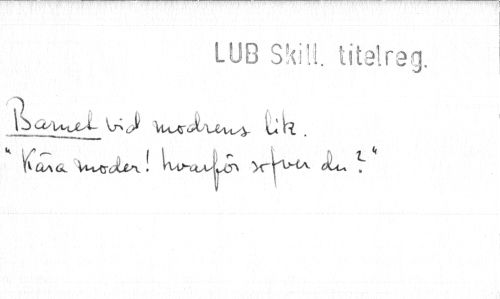 LUB Skill. titelreg.
Barnet vid modrens lik.
"Kära moder! hvarför sofver du?"